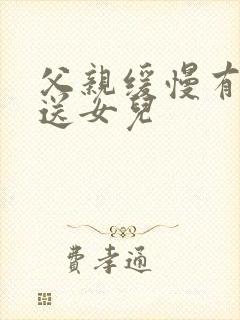 父親缓慢有
送女兒
費孝通